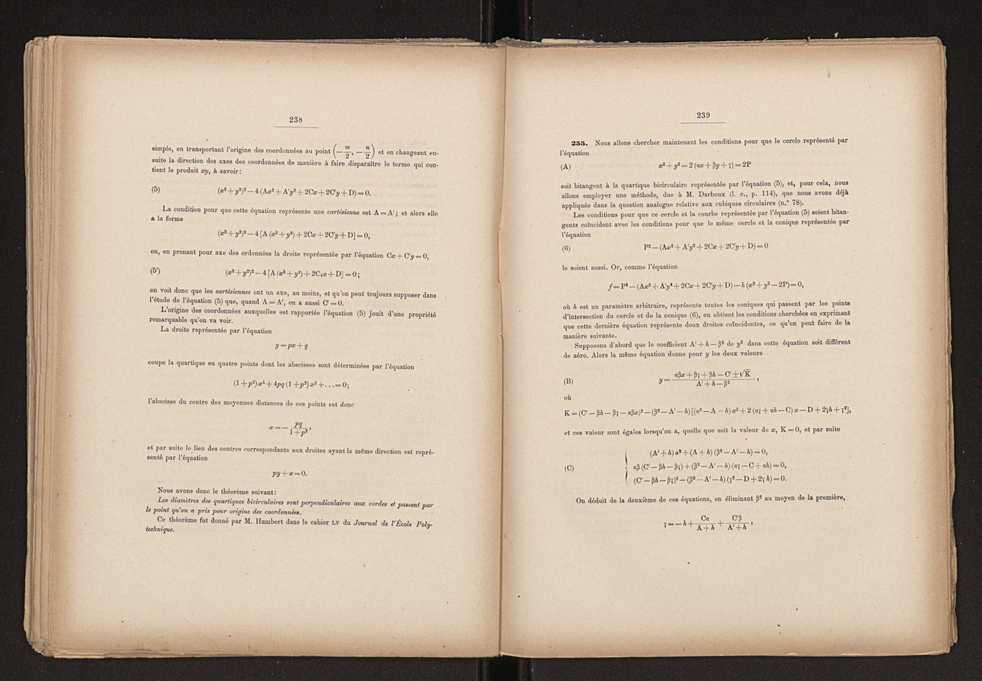 238
simple, en transportant l'origine des coordonnées au point (−m/2, −n/2) et en changeant en-
suite la direction des axes des coordonnées de manière à faire disparaître le terme qui con-
tient le produit xy, à savoir:
(5) (x²+y²)²−4(Ax²+A'y²+2Cx+2C'y+D)=0.
La condition pour que cette équation représente une cartésienne est A=A'; et alors elle
a la forme
(x²+y²)²−4[A(x²+y²)+2Cx+2C'y+D]=0,
ou, en prenant pour axe des ordonnées la droite représentée par l'équation Cx+C'y=0,
(5') (x²+y²)²−4[A(x²+y²)+2C₁x+D]=0;
on voit donc que les cartésiennes ont un axe, au moins, et qu'on peut toujours supposer dans
l'étude de l'équation (5) que, quand A=A', on a aussi C'=0.
L'origine des coordonnées auxquelles est rapportée l'équation (5) jouit d'une propriété
remarquable qu'on va voir.
La droite représentée par l'équation
y=px+q
coupe la quartique en quatre points dont les abscisses sont déterminées par l'équation
(1+p²)²x⁴+4pq(1+p²)x³+...=0;
l'abscisse du centre des moyennes distances de ces points est donc
x=−pq/(1+p²),
et par suite le lieu des centres correspondants aux droites ayant la même direction est repré-
senté par l'équation
py+x=0.
Nous avons donc le théorème suivant:
Les diamètres des quartiques bicirculaires sont perpendiculaires aux cordes et passent par
le point qu'on a pris pour origine des coordonnées.
Ce théorème fut donné par M. Humbert dans le cahier LV du Journal de l'École Poly-
technique.
239
255. Nous allons chercher maintenant les conditions pour que le cercle représenté par
l'équation
(A) x²+y²=2(αx+βy+γ)=2P
soit bitangent à la quartique bicirculaire représentée par l'équation (5), et, pour cela, nous
allons employer une méthode, due à M. Darboux (l. c., p. 114), que nous avons déjà
appliquée dans la question analogue relative aux cubiques circulaires (n.° 78).
Les conditions pour que ce cercle et la courbe représentée par l'équation (5) soient bitan-
gents coïncident avec les conditions pour que le même cercle et la conique représentée par
l'équation
(6) P²−(Ax²+A'y²+2Cx+2C'y+D)=0
le soient aussi. Or, comme l'équation
f=P²−(Ax²+A'y²+2Cx+2C'y+D)−h(x²+y²−2P)=0,
où h est un paramètre arbitraire, représente toutes les coniques qui passent par les points
d'intersection du cercle et de la conique (6), on obtient les conditions cherchées en exprimant
que cette dernière équation représente deux droites coïncidentes, ce qu'on peut faire de la
manière suivante.
Supposons d'abord que le coefficient A'+h−β² de y² dans cette équation soit différent
de zéro. Alors la même équation donne pour y les deux valeurs
(B) y=(αβx+βγ+βh−C'±√K)/(A'+h−β²),
où
K=(C'−βh−βγ−αβx)²−(β²−A'−h)[(α²−A−h)x²+2(αγ+αh−C)x−D+2γh+γ²],
et ces valeur sont égales lorsqu'on a, quelle que soit la valeur de x, K=0, et par suite
(A'+h)α²+(A+h)(β²−A'−h)=0,
(C) αβ(C'−βh−βγ)+(β²−A'−h)(αγ−C+αh)=0,
(C'−βh−βγ)²−(β²−A'−h)(γ²−D+2γh)=0.
On déduit de la deuxième de ces équations, en éliminant β² au moyen de la première,
γ=−h+Cα/(A+h)+C'β/(A'+h),